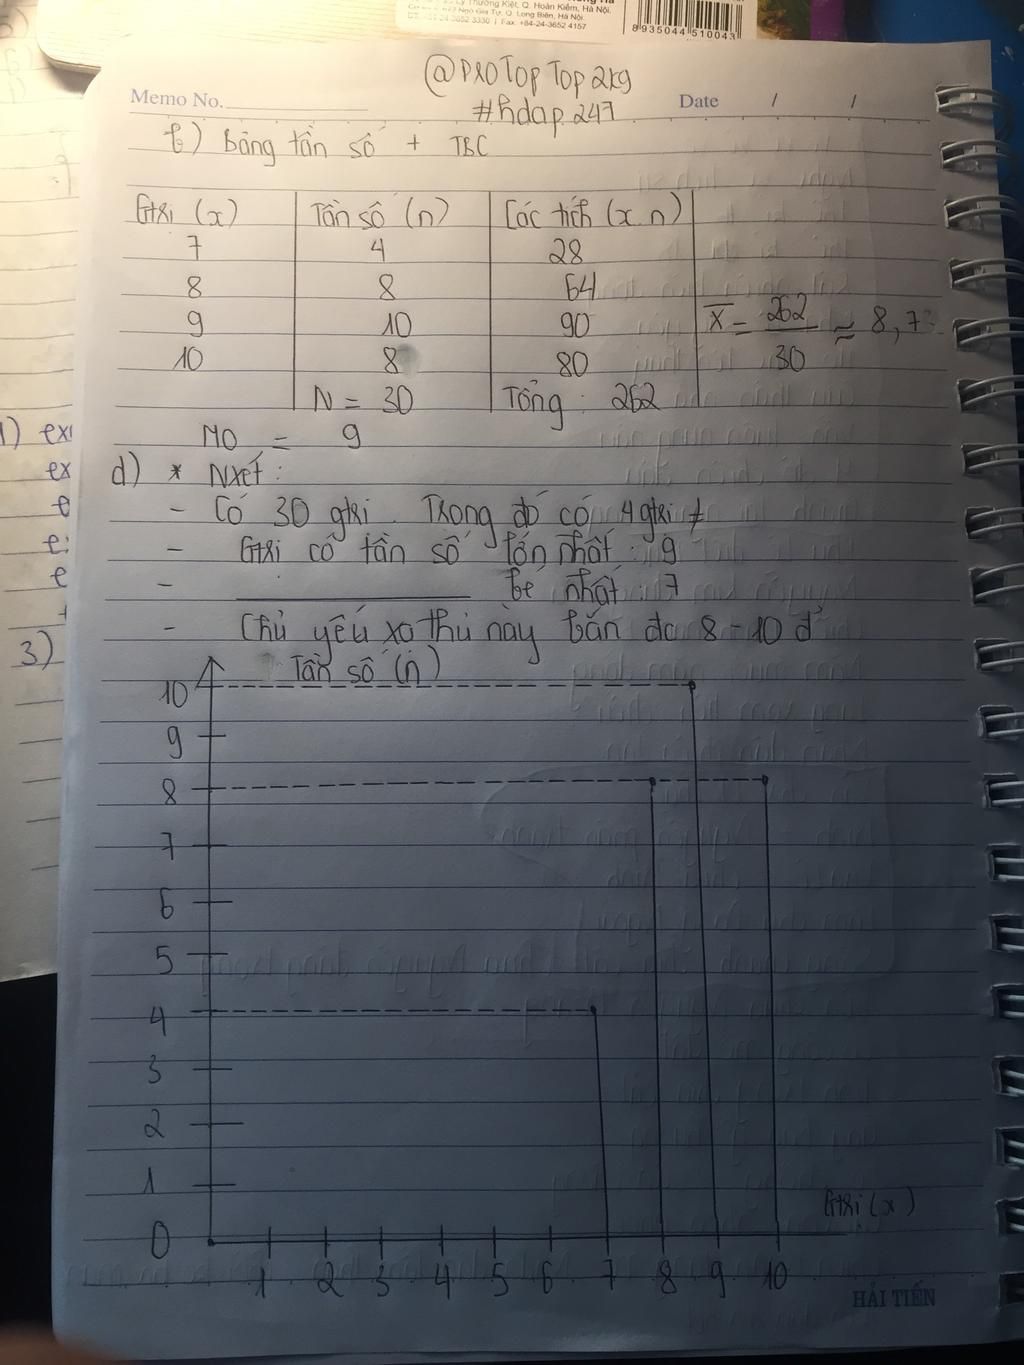 Lý Thường Kiệt, Q. Hoàn Kiếm, Hà Nội.
Ngô Gia Tự, Q. Long Biên, Hà Nội
3652 3330 | Fax: +84-24-3652 4157
8935044 510043
@PROTopTop2kg
Memo No.
#hdap247
Date / /
b) Bảng tần số + TBC
Gtri (x) Tần số (n) Các tích (x.n)
7 4 28
8 8 64
9 10 90
10 8 80
X = 262 / 30 ≈ 8,73
N = 30 Tổng: 262
MO = 9
d) * Nxét:
- Có 30 gtri. Trong đó có 4 gtri ≠
- Gtri có tần số lớn nhất: 9
- bé nhất: 7
- Chủ yếu xạ thủ này bắn đc 8-10 đ'
Tần số (n)
10
9
8
7
6
5
4
3
2
1
0
Gtri (x)
1 2 3 4 5 6 7 8 9 10
HẢI TIẾN
1) ex
ex
e
e
e
3)